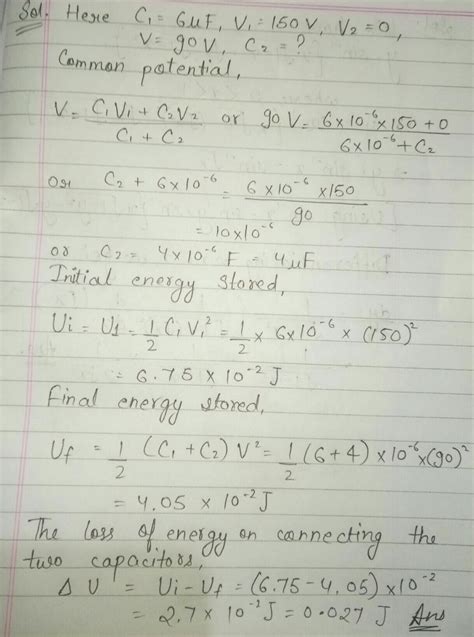 Sol. Here C₁ = 6μF, V₁ = 150 V, V₂ = 0,
V = 90 V, C₂ = ?
Common potential,
V = C₁V₁ + C₂V₂ / C₁ + C₂ or 90 V = 6×10⁻⁶×150+0 / 6×10⁻⁶+C₂
or C₂ + 6×10⁻⁶ = 6×10⁻⁶×150 / 90
= 10×10⁻⁶
or C₂ = 4×10⁻⁶ F = 4μF
Initial energy stored,
Ui = U1 = 1/2 C₁V₁² = 1/2 × 6×10⁻⁶ × (150)²
= 6.75 × 10⁻² J
Final energy stored,
Uf = 1/2 (C₁ + C₂) V² = 1/2 (6+4) ×10⁻⁶×(90)²
= 4.05 × 10⁻² J
The loss of energy on connecting the
two capacitors,
Δ U = Ui - Uf = (6.75 - 4.05) ×10⁻²
= 2.7 × 10⁻² J = 0.027 J Ans